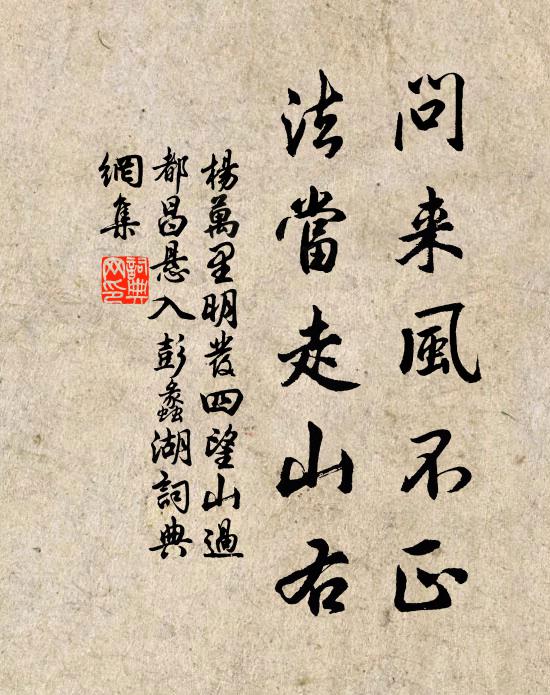 問来風不正
法當走山右
楊萬里明發四望山過
都昌悬入彭蠡湖詞典
網集
詞典網印